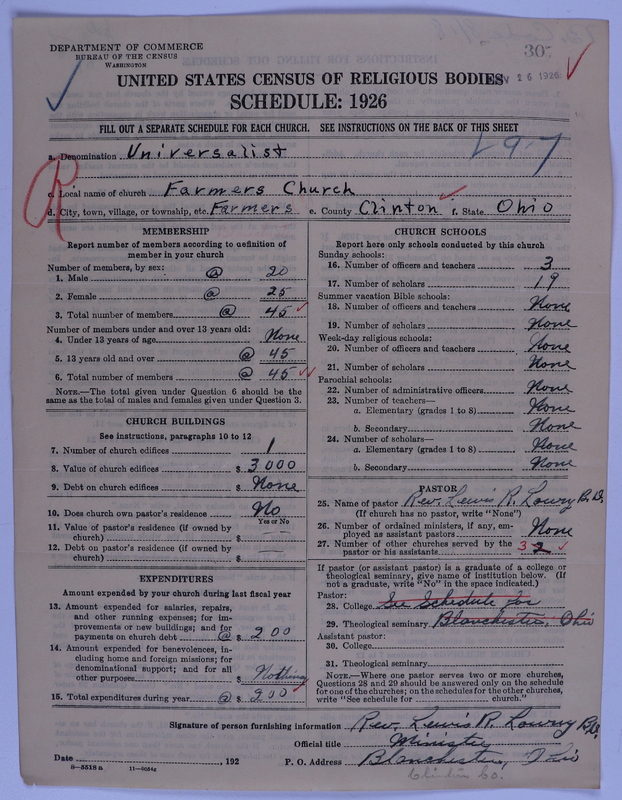 DEPARTMENT OF COMMERCE
BUREAU OF THE CENSUS
WASHINGTON
307
UNITED STATES CENSUS OF RELIGIOUS BODIES
NOV 26 1926
SCHEDULE: 1926
FILL OUT A SEPARATE SCHEDULE FOR EACH CHURCH. SEE INSTRUCTIONS ON THE BACK OF THIS SHEET
a. Denomination Universalist
c. Local name of church Farmers Church
d. City, town, village, or township, etc. Farmers e. County Clinton f. State Ohio
MEMBERSHIP
Report number of members according to definition of
member in your church
Number of members, by sex:
1. Male @ 20
2. Female @ 25
3. Total number of members @ 45
Number of members under and over 13 years old:
4. Under 13 years of age None
5. 13 years old and over @ 45
6. Total number of members @ 45
NOTE.—The total given under Question 6 should be
same as the total of males and females given under Question 3.
CHURCH BUILDINGS
See instructions, paragraphs 10 to 12
7. Number of church edifices 1
8. Value of church edifices $ 3000
9. Debt on church edifices $ None
10. Does church own pastor's residence? No
Yes or No
11. Value of pastor's residence (if owned by
church) $
12. Debt on pastor's residence (if owned by
church) $
EXPENDITURES
Amount expended by your church during last fiscal year
13. Amount expended for salaries, repairs,
and other running expenses; for im-
provements or new buildings; and for
payments on church debt @ $ 200
14. Amount expended for benevolences, in-
cluding home and foreign missions; for
denominational support; and for all
other purposes $ Nothing
15. Total expenditures during year @ $ 200
CHURCH SCHOOLS
Report here only schools conducted by this church
Sunday schools:
16. Number of officers and teachers 3
17. Number of scholars 19
Summer vacation Bible schools:
18. Number of officers and teachers None
19. Number of scholars None
Week-day religious schools:
20. Number of officers and teachers None
21. Number of scholars None
Parochial schools:
22. Number of administrative officers None
23. Number of teachers—
a. Elementary (grades 1 to 8) None
b. Secondary None
24. Number of scholars—
a. Elementary (grades 1 to 8) None
b. Secondary None
PASTOR
25. Name of pastor Rev. Lewis R. Lowry B.D.
(If church has no pastor, write "None")
26. Number of ordained ministers, if any, em-
ployed as assistant pastors None
27. Number of other churches served by the
pastor or his assistants 3 2
If pastor (or assistant pastor) is a graduate of a college or
theological seminary, give name of institution below. (If
not a graduate, write "No" in the space indicated.)
Pastor:
28. College See Schedule for
29. Theological seminary Blanchester, Ohio
Assistant pastor:
30. College
31. Theological seminary
NOTE.—Where one pastor serves two or more churches,
Questions 28 and 29 should be answered only on the schedule
for one of the churches; on the schedules for the other churches,
write "See schedule for church."
Signature of person furnishing information Rev. Lewis R. Lowry B.D.
Official title Minister
Date , 192 P. O. Address Blanchester, Ohio
8—5518 a 11—9054g
Clinton Co.